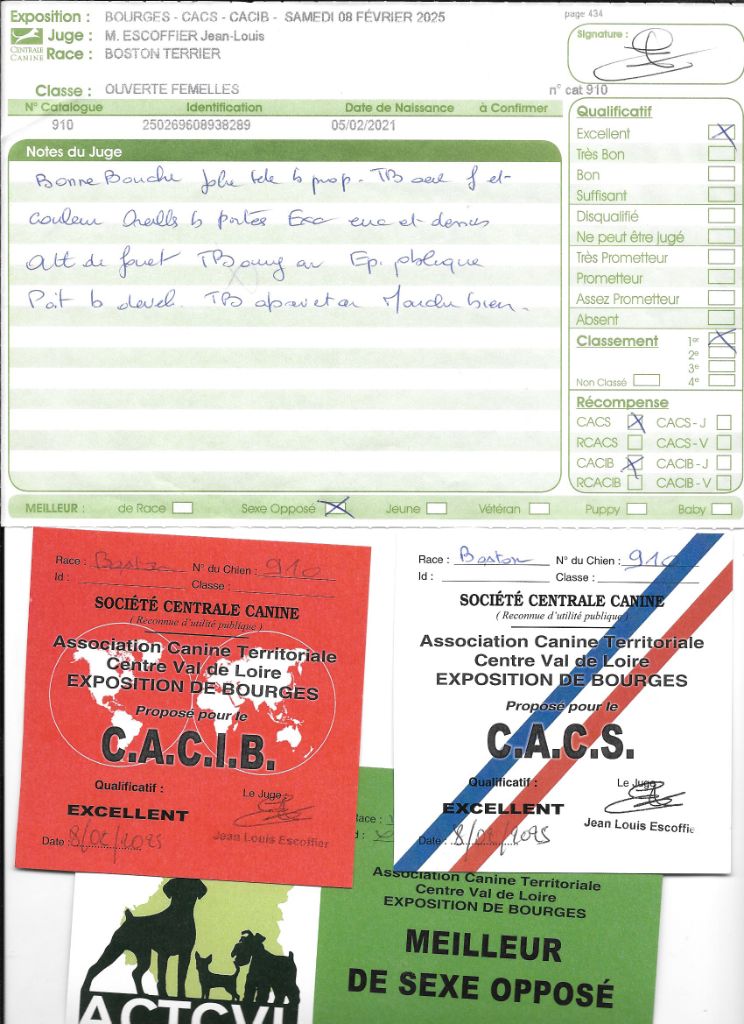 Exposition : BOURGES - CACS - CACIB - SAMEDI 08 FÉVRIER 2025
page 434
CENTRALE CANINE
Juge : M. ESCOFFIER Jean-Louis
Race : BOSTON TERRIER
Signature :
Classe : OUVERTE FEMELLES
n° cat 910
N° Catalogue Identification Date de Naissance à Confirmer
910 250269608938289 05/02/2021
Notes du Juge
Bonne Bouche Jolie tete b prop. TB oeil f et
couleur Oreilles b portées Exc enc et dessus
Att de fouet TB ang av
Poit b devel. TB Marche bien.
Qualificatif
Excellent
Très Bon
Bon
Suffisant
Disqualifié
Ne peut être jugé
Très Prometteur
Prometteur
Assez Prometteur
Absent
Classement 1er
2e
3e
Non Classé 4e
Récompense
CACS CACS - J
RCACS CACS - V
CACIB CACIB - J
RCACIB CACIB - V
MEILLEUR : de Race Sexe Opposé Jeune Vétéran Puppy Baby
Race : Boston N° du Chien : 910
Id : Classe :
SOCIÉTÉ CENTRALE CANINE
( Reconnue d'utilité publique )
Association Canine Territoriale
Centre Val de Loire
EXPOSITION DE BOURGES
Proposé pour le
C.A.C.I.B.
Qualificatif : Le Juge
EXCELLENT
Date : 8/02/2025 Jean Louis Escoffier
Race : Boston N° du Chien : 910
Id : Classe :
SOCIÉTÉ CENTRALE CANINE
( Reconnue d'utilité publique )
Association Canine Territoriale
Centre Val de Loire
EXPOSITION DE BOURGES
Proposé pour le
C.A.C.S.
Qualificatif : Le Juge
EXCELLENT
Date : 8/02/2025 Jean Louis Escoffie
Association Canine Territoriale
Centre Val de Loire
EXPOSITION DE BOURGES
MEILLEUR
DE SEXE OPPOSÉ
ACTCVL